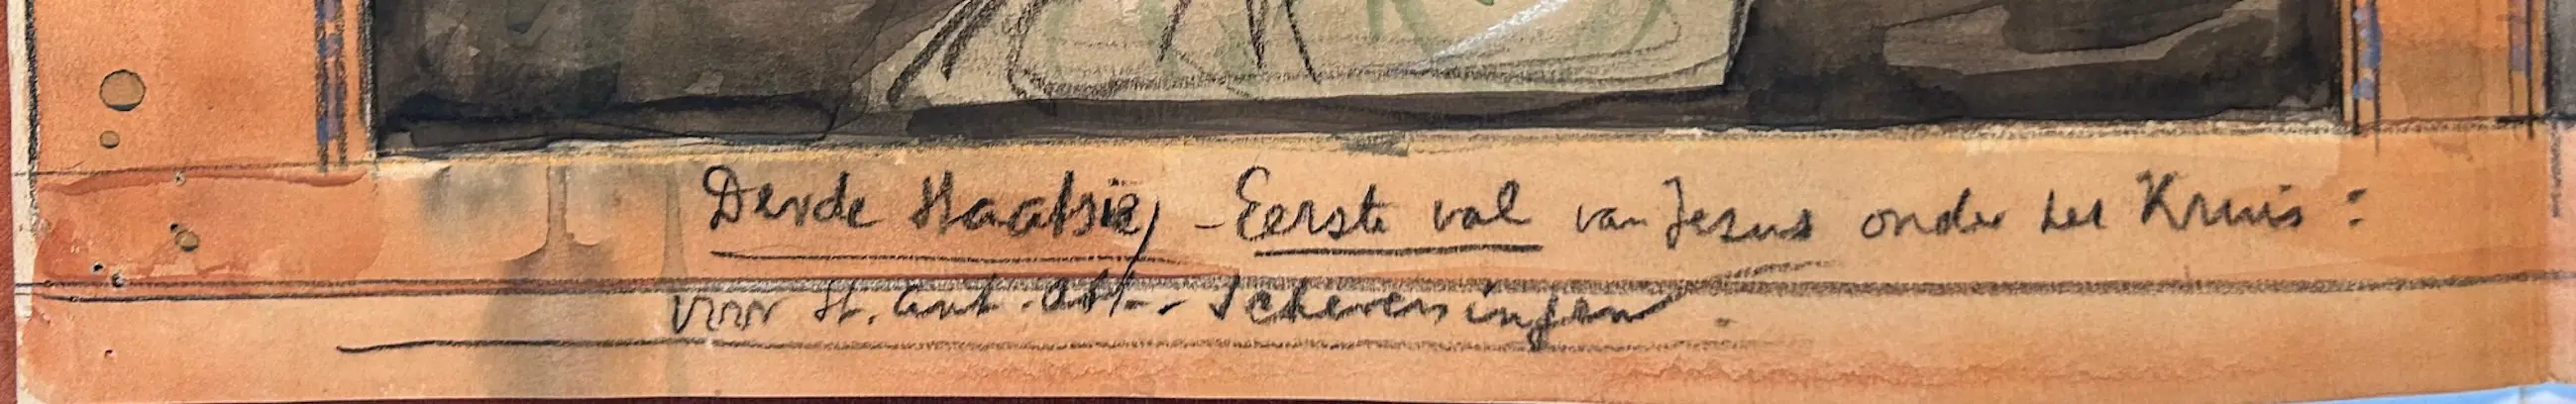 Derde Staatsie, - Eerste val van Jesus onder het Kruis :
voor St. Ant. Abt. - Scheveningen.